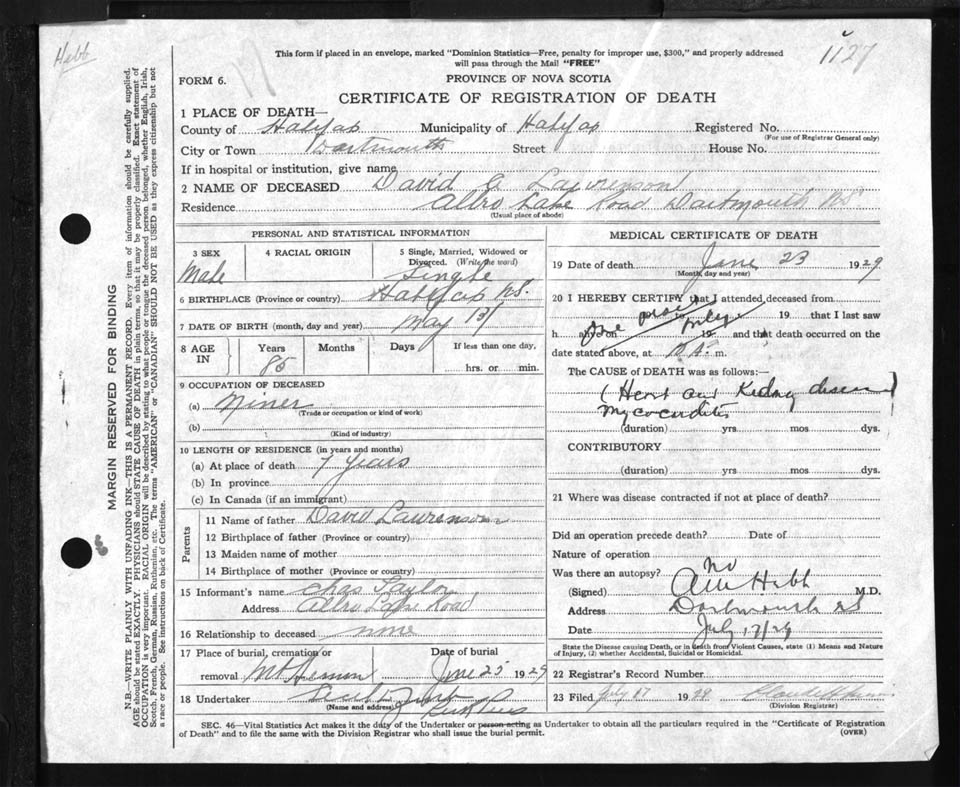 Hebb
1127
This form if placed in an envelope, marked "Dominion Statistics—Free, penalty for improper use, $300," and properly addressed
will pass through the Mail "FREE"
FORM 6.
PROVINCE OF NOVA SCOTIA
CERTIFICATE OF REGISTRATION OF DEATH
MARGIN RESERVED FOR BINDING
N.B—WRITE PLAINLY WITH UNFADING INK—THIS IS A PERMANENT RECORD. Every item of information should be carefully supplied.
AGE should be stated EXACTLY. PHYSICIANS should STATE CAUSE OF DEATH in plain terms, so that it may be properly classified. Exact statement of
OCCUPATION is very important. RACIAL ORIGIN will be described by stating to what people or tongue the deceased person belonged, whether English, Irish,
Scotch, French, German, Russian, Ruthenian, etc. The terms "AMERICAN" or "CANADIAN" SHOULD NOT BE USED as they express citizenship but not
a race or people. See instructions on back of Certificate.
1 PLACE OF DEATH—
County of Halifax Municipality of Halifax Registered No.
(For use of Registrar General only)
City or Town Dartmouth Street House No.
If in hospital or institution, give name
2 NAME OF DECEASED David Lawrenson
Residence Albro Lake Road Dartmouth NS.
(Usual place of abode)
PERSONAL AND STATISTICAL INFORMATION
3 SEX Male
4 RACIAL ORIGIN
5 Single, Married, Widowed or
Divorced. (Write the word)
Single
6 BIRTHPLACE (Province or country) Halifax NS.
7 DATE OF BIRTH (month, day and year) May
8 AGE IN
Years
Months
Days
If less than one day,
hrs. or min.
9 OCCUPATION OF DECEASED
(a) Miner
(Trade or occupation or kind of work)
(b)
(Kind of industry)
10 LENGTH OF RESIDENCE (in years and months)
(a) At place of death 7 years
(b) In province
(c) In Canada (if an immigrant)
Parents
11 Name of father David Lawrenson
12 Birthplace of father (Province or country)
13 Maiden name of mother
14 Birthplace of mother (Province or country)
15 Informant's name Chas Taylor
Address Albro Lake Road
16 Relationship to deceased none
17 Place of burial, cremation or
removal Mt Hermon
Date of burial
June 25 1929
18 Undertaker
(Name and address)
MEDICAL CERTIFICATE OF DEATH
19 Date of death June 23 1929
(Month, day and year)
20 I HEREBY CERTIFY that I attended deceased from
19 that I last saw
h alive on 19 and that death occurred on
date stated above, at m.
The CAUSE of DEATH was as follows:—
(Heart and Kidney disease)
Myocarditis
(duration) yrs mos dys.
CONTRIBUTORY
(duration) yrs mos dys.
21 Where was disease contracted if not at place of death?
Did an operation precede death? Date of
Nature of operation
Was there an autopsy? No
(Signed) Hebb M.D.
Address Dartmouth NS
Date July 17/29
State the Disease causing Death, or in death from Violent Causes, state (1) Means and Nature
of Injury, (2) whether Accidental, Suicidal or Homicidal.
22 Registrar's Record Number
23 Filed July 17 1929
(Division Registrar)
SEC. 46—Vital Statistics Act makes it the duty of the Undertaker or person acting as Undertaker to obtain all the particulars required in the "Certificate of Registration
of Death" and to file the same with the Division Registrar who shall issue the burial permit.
(OVER)